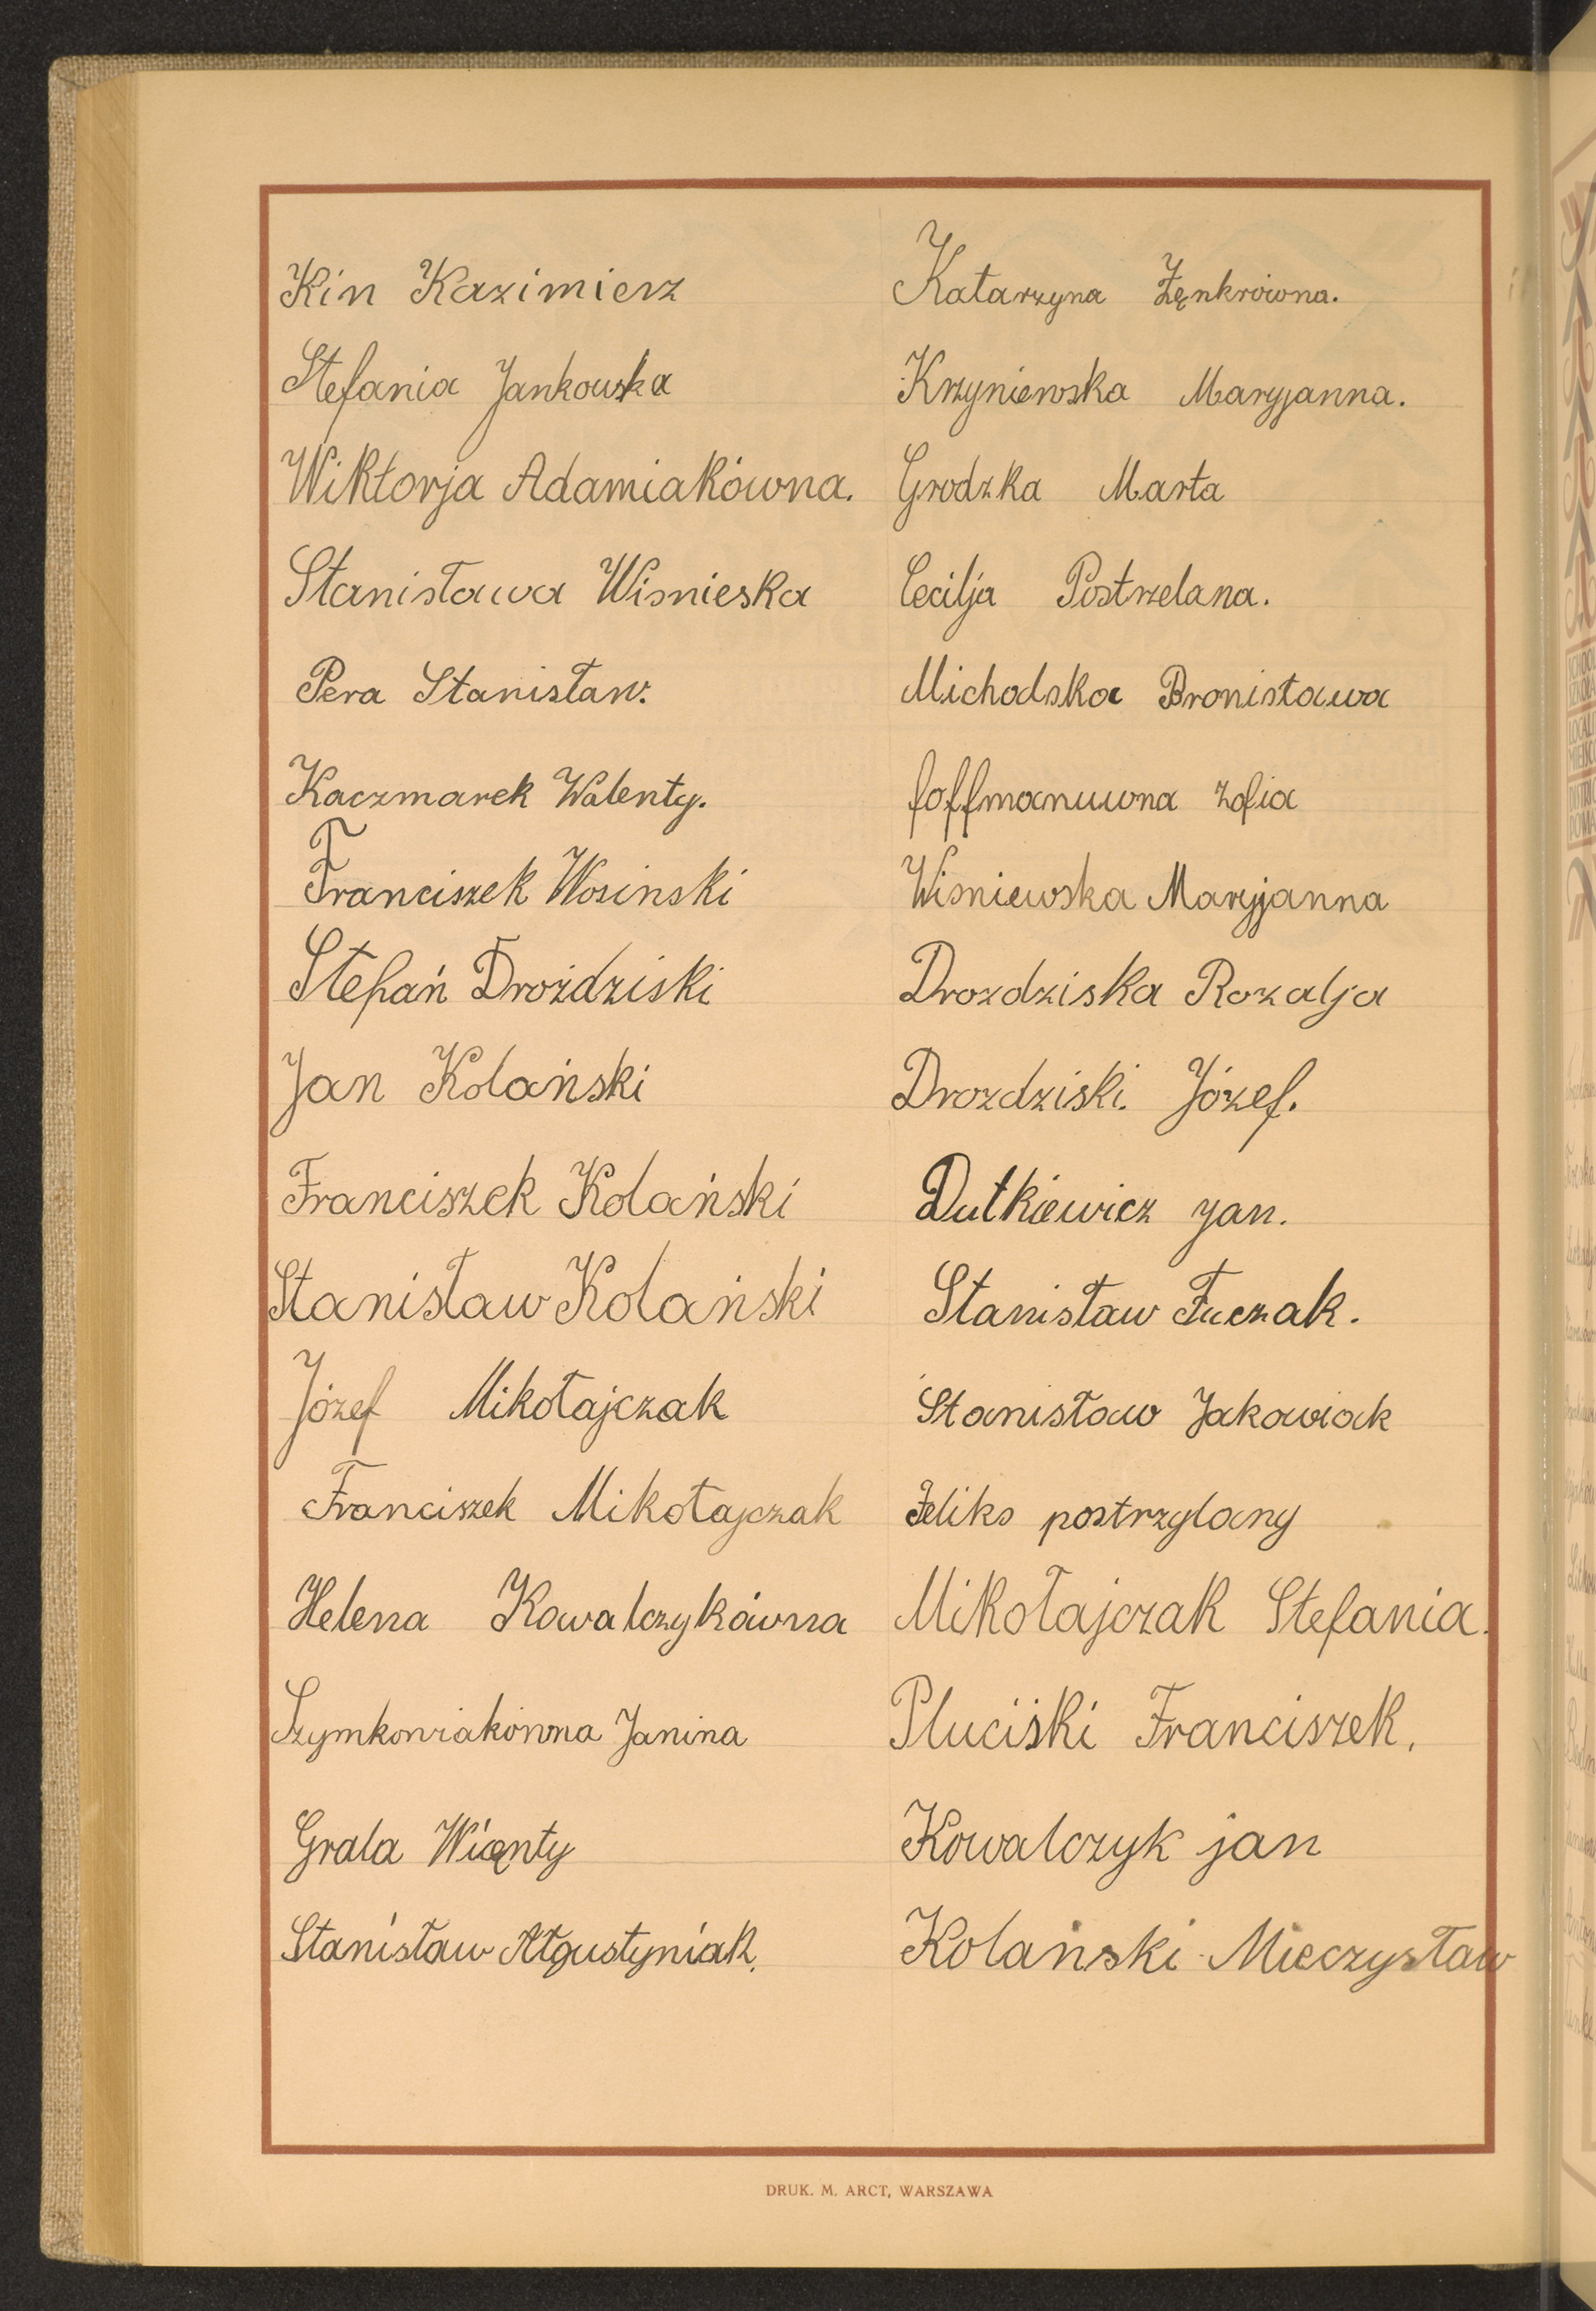 Kin Kazimierz
Stefania Jankowska
Wiktorja Adamiakówna.
Stanisława Wisnieska
Pera Stanisław.
Kaczmarek Walenty.
Franciszek Wosinski
Stefań Drożdziski
Jan Kolański
Franciszek Kolański
Stanisław Kolański
Józef Mikołajczak
Franciszek Mikołajczak
Helena Kowalczykówna
Szymkowiakówna Janina
Grala Wiąnty
Stanisław Ałgustyniak.
Katarzyna Zęnkrówna.
Krzyniewska Maryjanna.
Grodzka Marta
Cecilja Postrzelana.
Michodska Bronisława
foffmanuwna Zofia
Wisniewska Maryjanna
Drozdziska Rozalja
Drozdziski. Józef.
Dutkiewicz Jan.
Stanisław Fuczak.
Stanisław Jakowiak
Feliks postrzylany
Mikołajczak Stefania.
Pluciski Franciszek.
Kowalczyk jan
Kolański Mieczysław
DRUK. M. ARCT, WARSZAWA